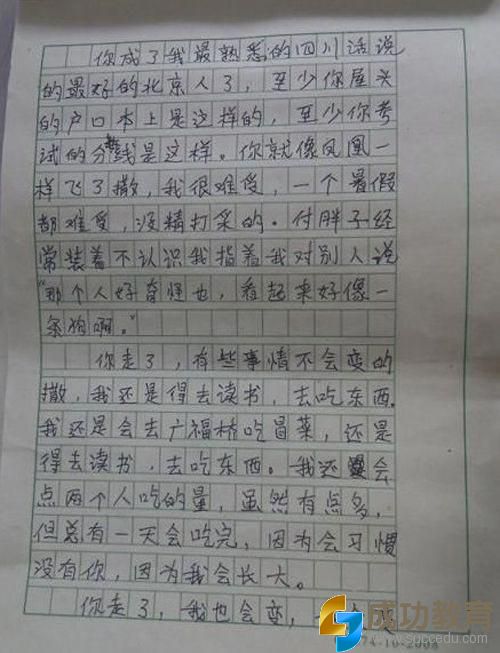 你成了我最熟悉的四川话说
的最好的北京人了，至少你屋头
的户口本上是这样的，至少你考
试的分数线是这样。你就像凤凰一
样飞了撒，我很难受，一个暑假
都难受，没精打采的。付胖子经
常装着不认识我指着我对别人说
“那个人好奇怪也，看起来好像一
条狗啊。”
你走了，有些事情不会变的
撒，我还是得去读书，去吃东西。
我还是会去广福桥吃冒菜，还是
得去读书，去吃东西。我还会
点两个人吃的量，虽然有点多，
但总有一天会吃完，因为会习惯
没有你，因为我会长大。
你走了，我也会变，
成功教育
www.sgccedu.com